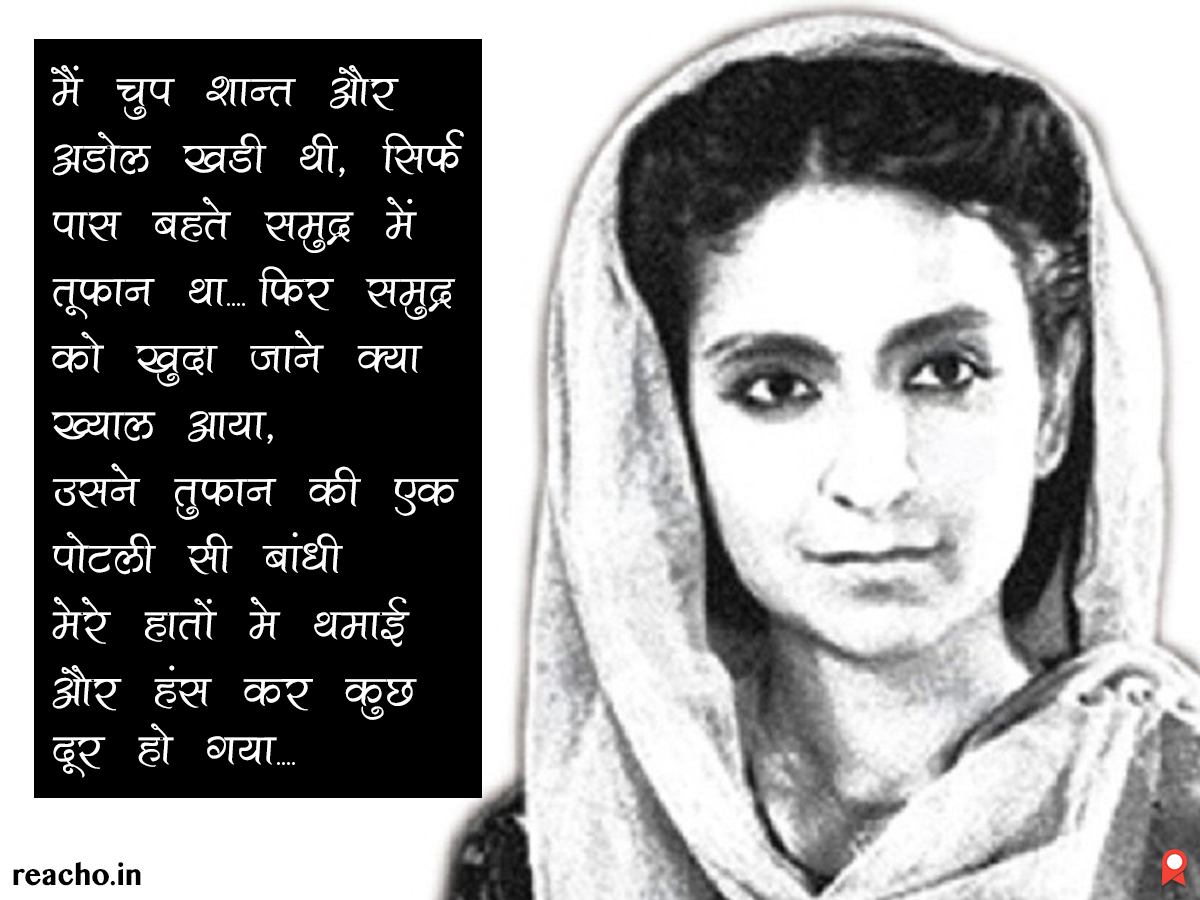 मैं चुप शान्त और
अडोल खडी थी, सिर्फ
पास बहते समुद्र में
तूफान था.... फिर समुद्र
को खुदा जाने क्या
ख्याल आया,
उसने तुफान की एक
पोटली सी बांधी
मेरे हातों मे थमाई
और हंस कर कुछ
दूर हो गया....
reacho.in